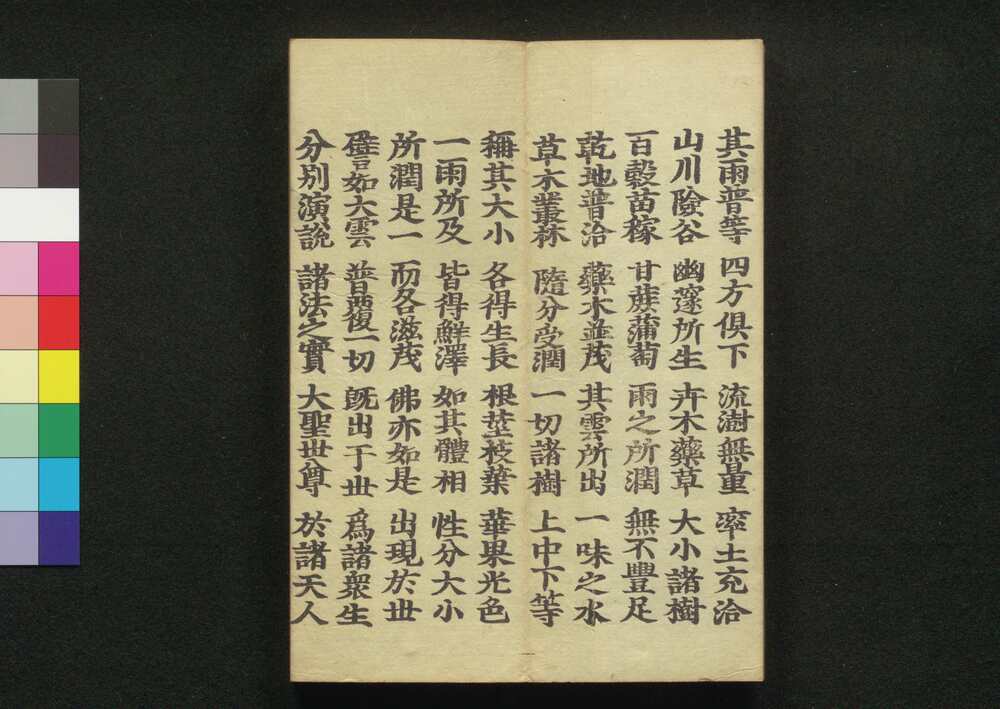 其雨普等 四方俱下 流澍無量 率土充洽
山川險谷 幽邃所生 卉木藥草 大小諸樹
百穀苗稼 甘蔗蒲萄 雨之所潤 無不豐足
乾地普洽 藥木並茂 其雲所出 一味之水
草木叢林 隨分受潤 一切諸樹 上中下等
稱其大小 各得生長 根莖枝葉 華果光色
一雨所及 皆得鮮澤 如其體相 性分大小
所潤是一 而各滋茂 佛亦如是 出現於世
譬如大雲 普覆一切 既出于世 為諸眾生
分別演說 諸法之實 大聖世尊 於諸天人